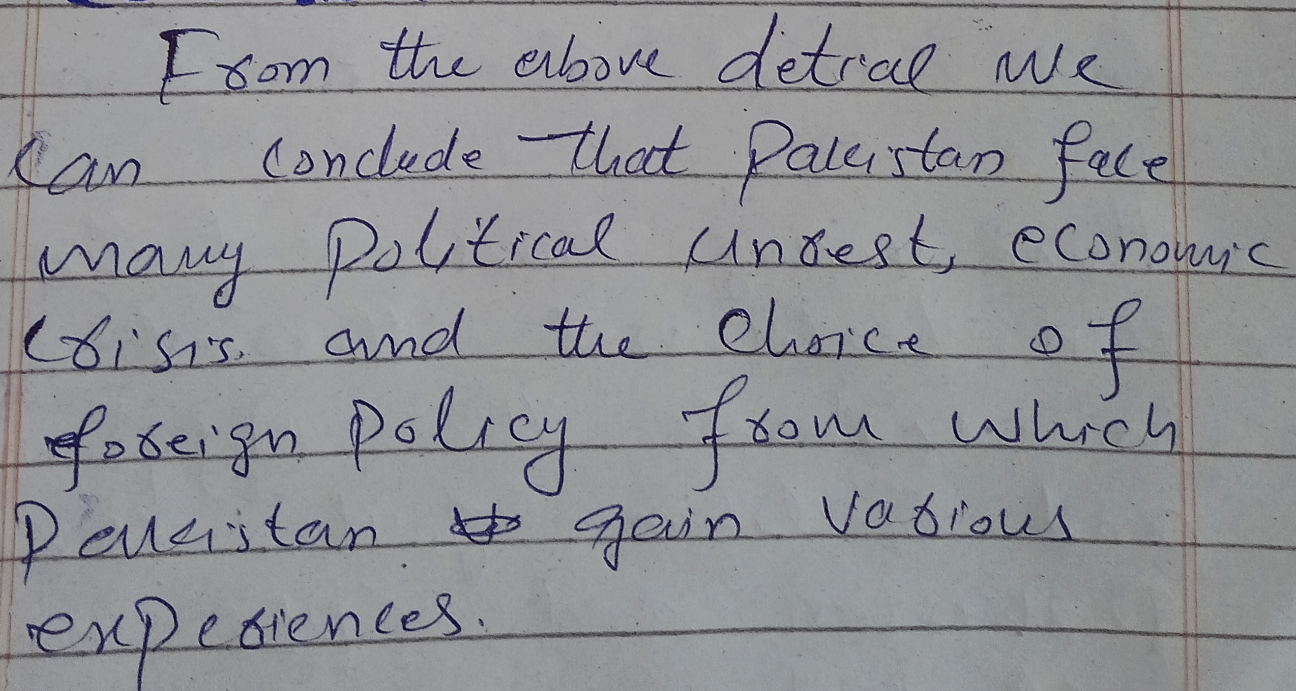 From the above detial we
can conclude that Pakistan face
many political unrest, economic
crisis. and the choice of
foreign policy from which
Pakistan gain various
experiences.